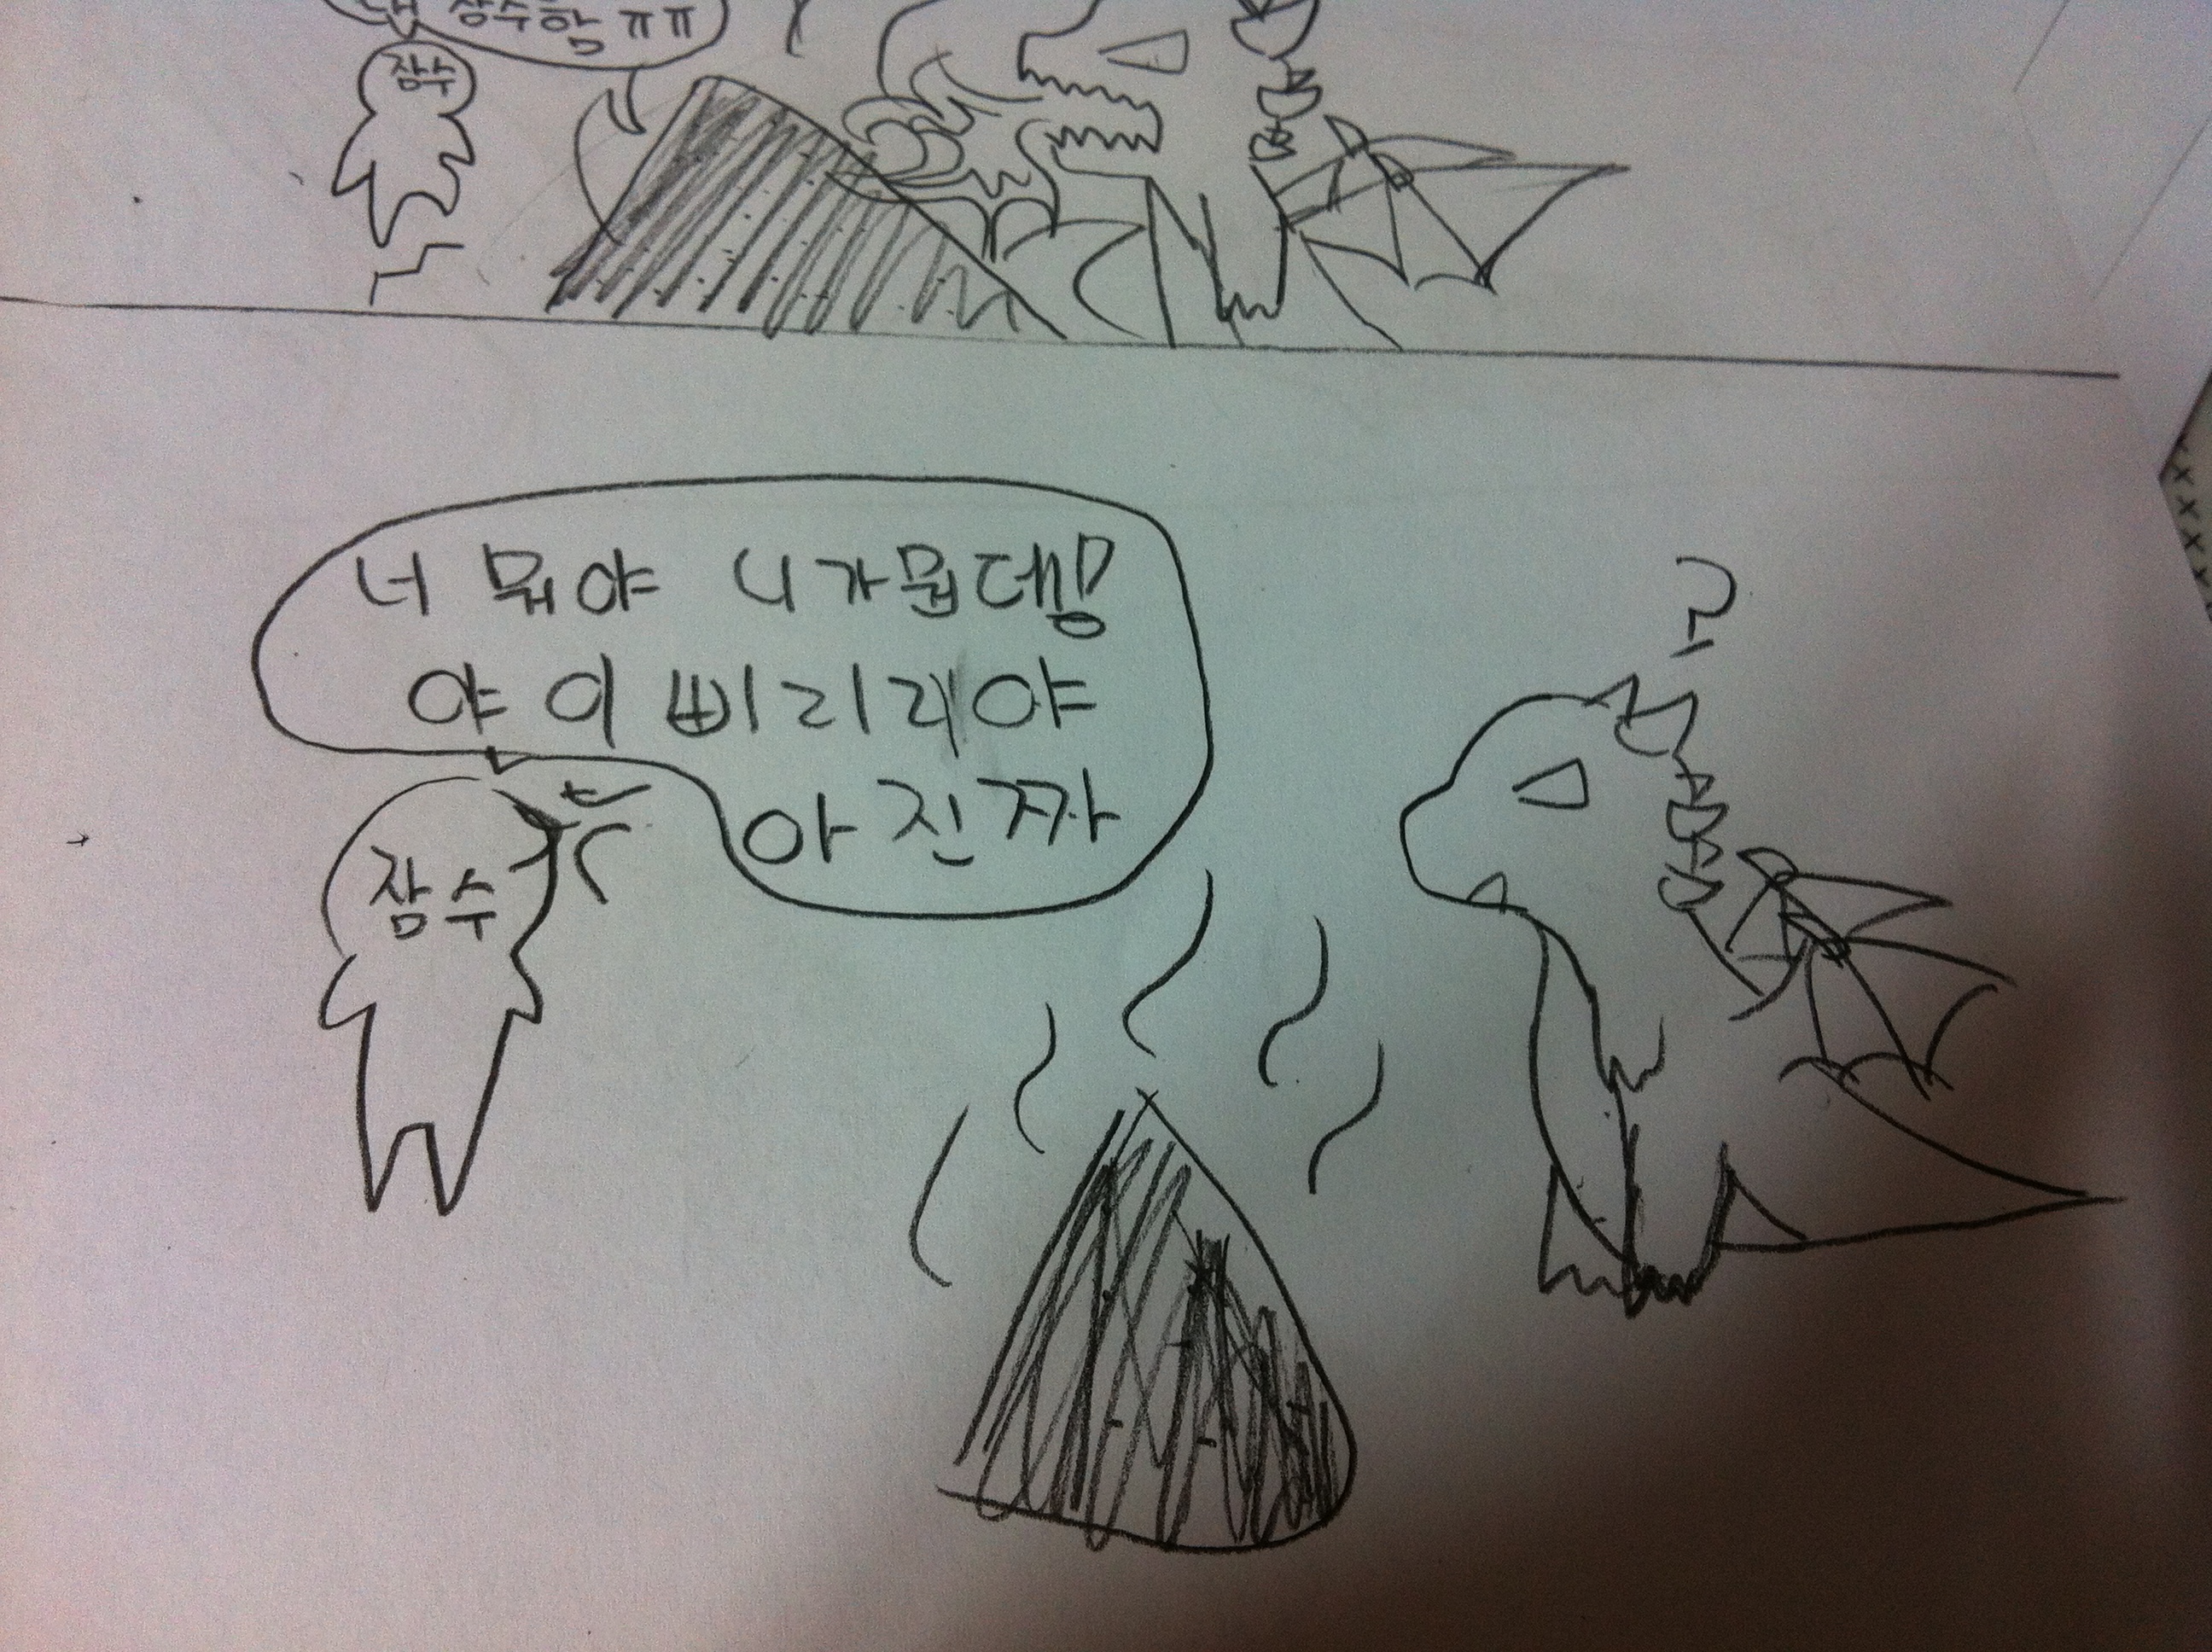 잠수함 ㅠㅠ
잠수
너 뭐야 니가뭡데밍
야 이 삐리리야
아 진짜
잠수
?